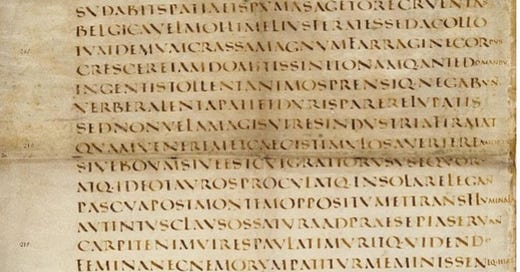 SVDABITSPATIAETSPVMASAGETORECRVENTA
BELGICAVELMOLLIMELIVSFERATESSEDACOLLO
TVMDEMVMCRASSAMAGNVMFARRAGINECORPVS
CRESCEREIAMDOMITISSINITONAMQ·ANTEDOMANDV
INGENTISTOLLENTANIMOSPRENSIQ·NEGABVN
VERBERALENTAPATIETDVRISPARERELVPATIS
SEDNONVLLAMAGISVIRESINDVSTRIAFIRMAT
QVAMVENEREMETCAECISTIMVLOSAVERTERE
SIVEBOVMSIVEESTCVIGRATIORVSVSEQVOR
ATQ·IDEOTAVROSPROCVLATQ·INSOLARELEGAN
PASCVAPOSTMONTEMOPPOSITVMETTRANSFLVMINA
AVTINTVSCLAVSOSSATVRAADPRAESEPIASERVAN
CARPITENIMVIRESPAVLATIMVRITQ·VIDEND
FEMINANECNEMORVMPATITVRMEMINISSEN